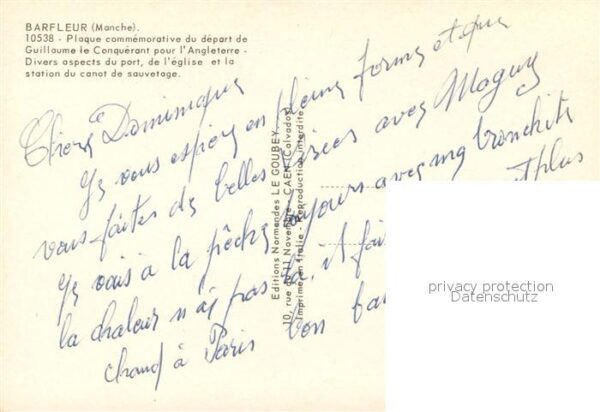 BARFLEUR (Manche).
10538 - Plaque commémorative du départ de
Guillaume le Conquérant pour l'Angleterre -
Divers aspects du port, de l'église et la
station du canot de sauvetage.
Chère Dominique
Je vous espère en pleine forme et que
vous faites de belles avec Maguy
Je vais à la pêche toujours avec ma bronchite
la chaleur n'a pas il fait plus
chaud à Paris bon
Editions Normandes LE GOUBEY
10, rue du 11 Novembre - CAEN (Calvados)
Imprimé en Italie - Reproduction interdite
privacy protection
Datenschutz